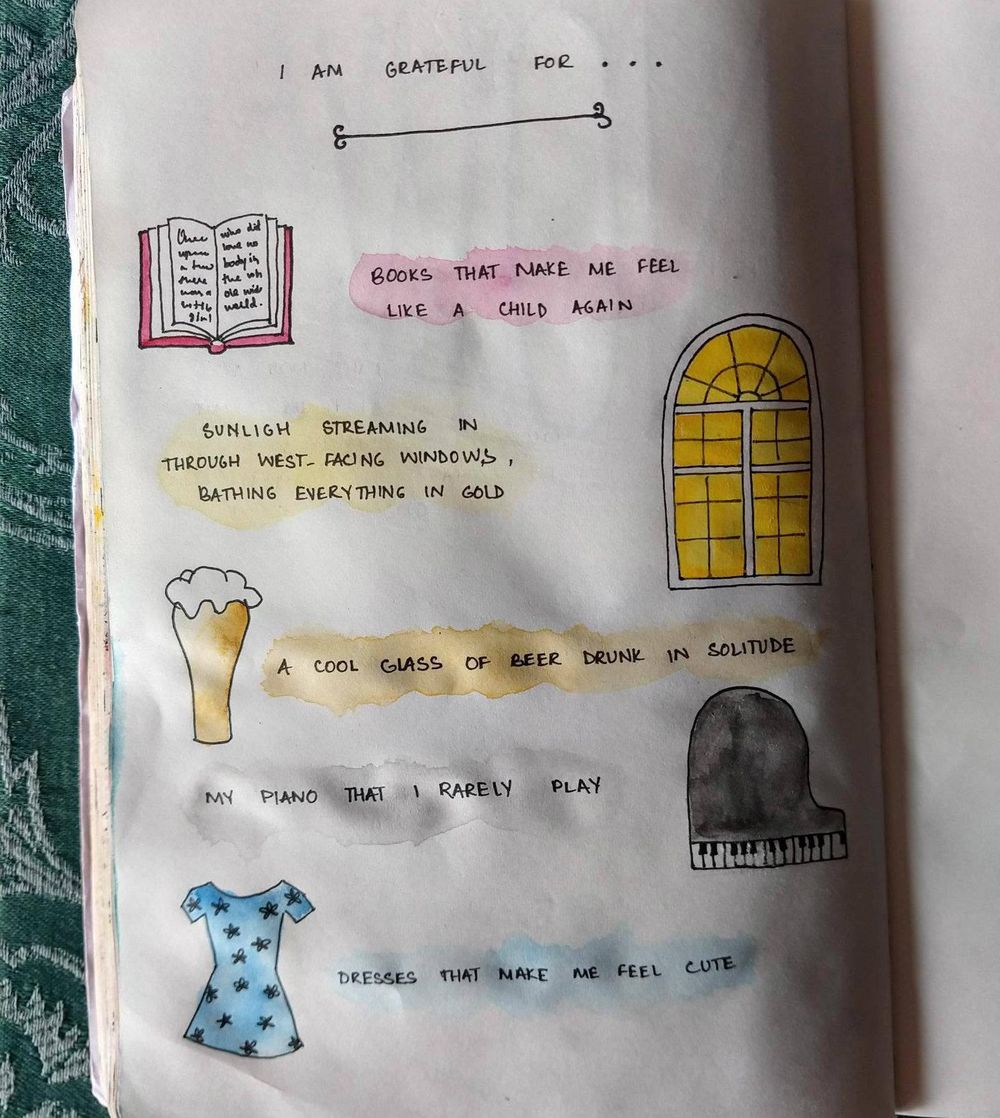 I AM GRATEFUL FOR . . .
Once
upon
a time
there
was a
little
girl
who did
love no
body in
the wh
ole wide
world.
BOOKS THAT MAKE ME FEEL
LIKE A CHILD AGAIN
SUNLIGH STREAMING IN
THROUGH WEST-FACING WINDOWS,
BATHING EVERYTHING IN GOLD
A COOL GLASS OF BEER DRUNK IN SOLITUDE
MY PIANO THAT I RARELY PLAY
DRESSES THAT MAKE ME FEEL CUTE